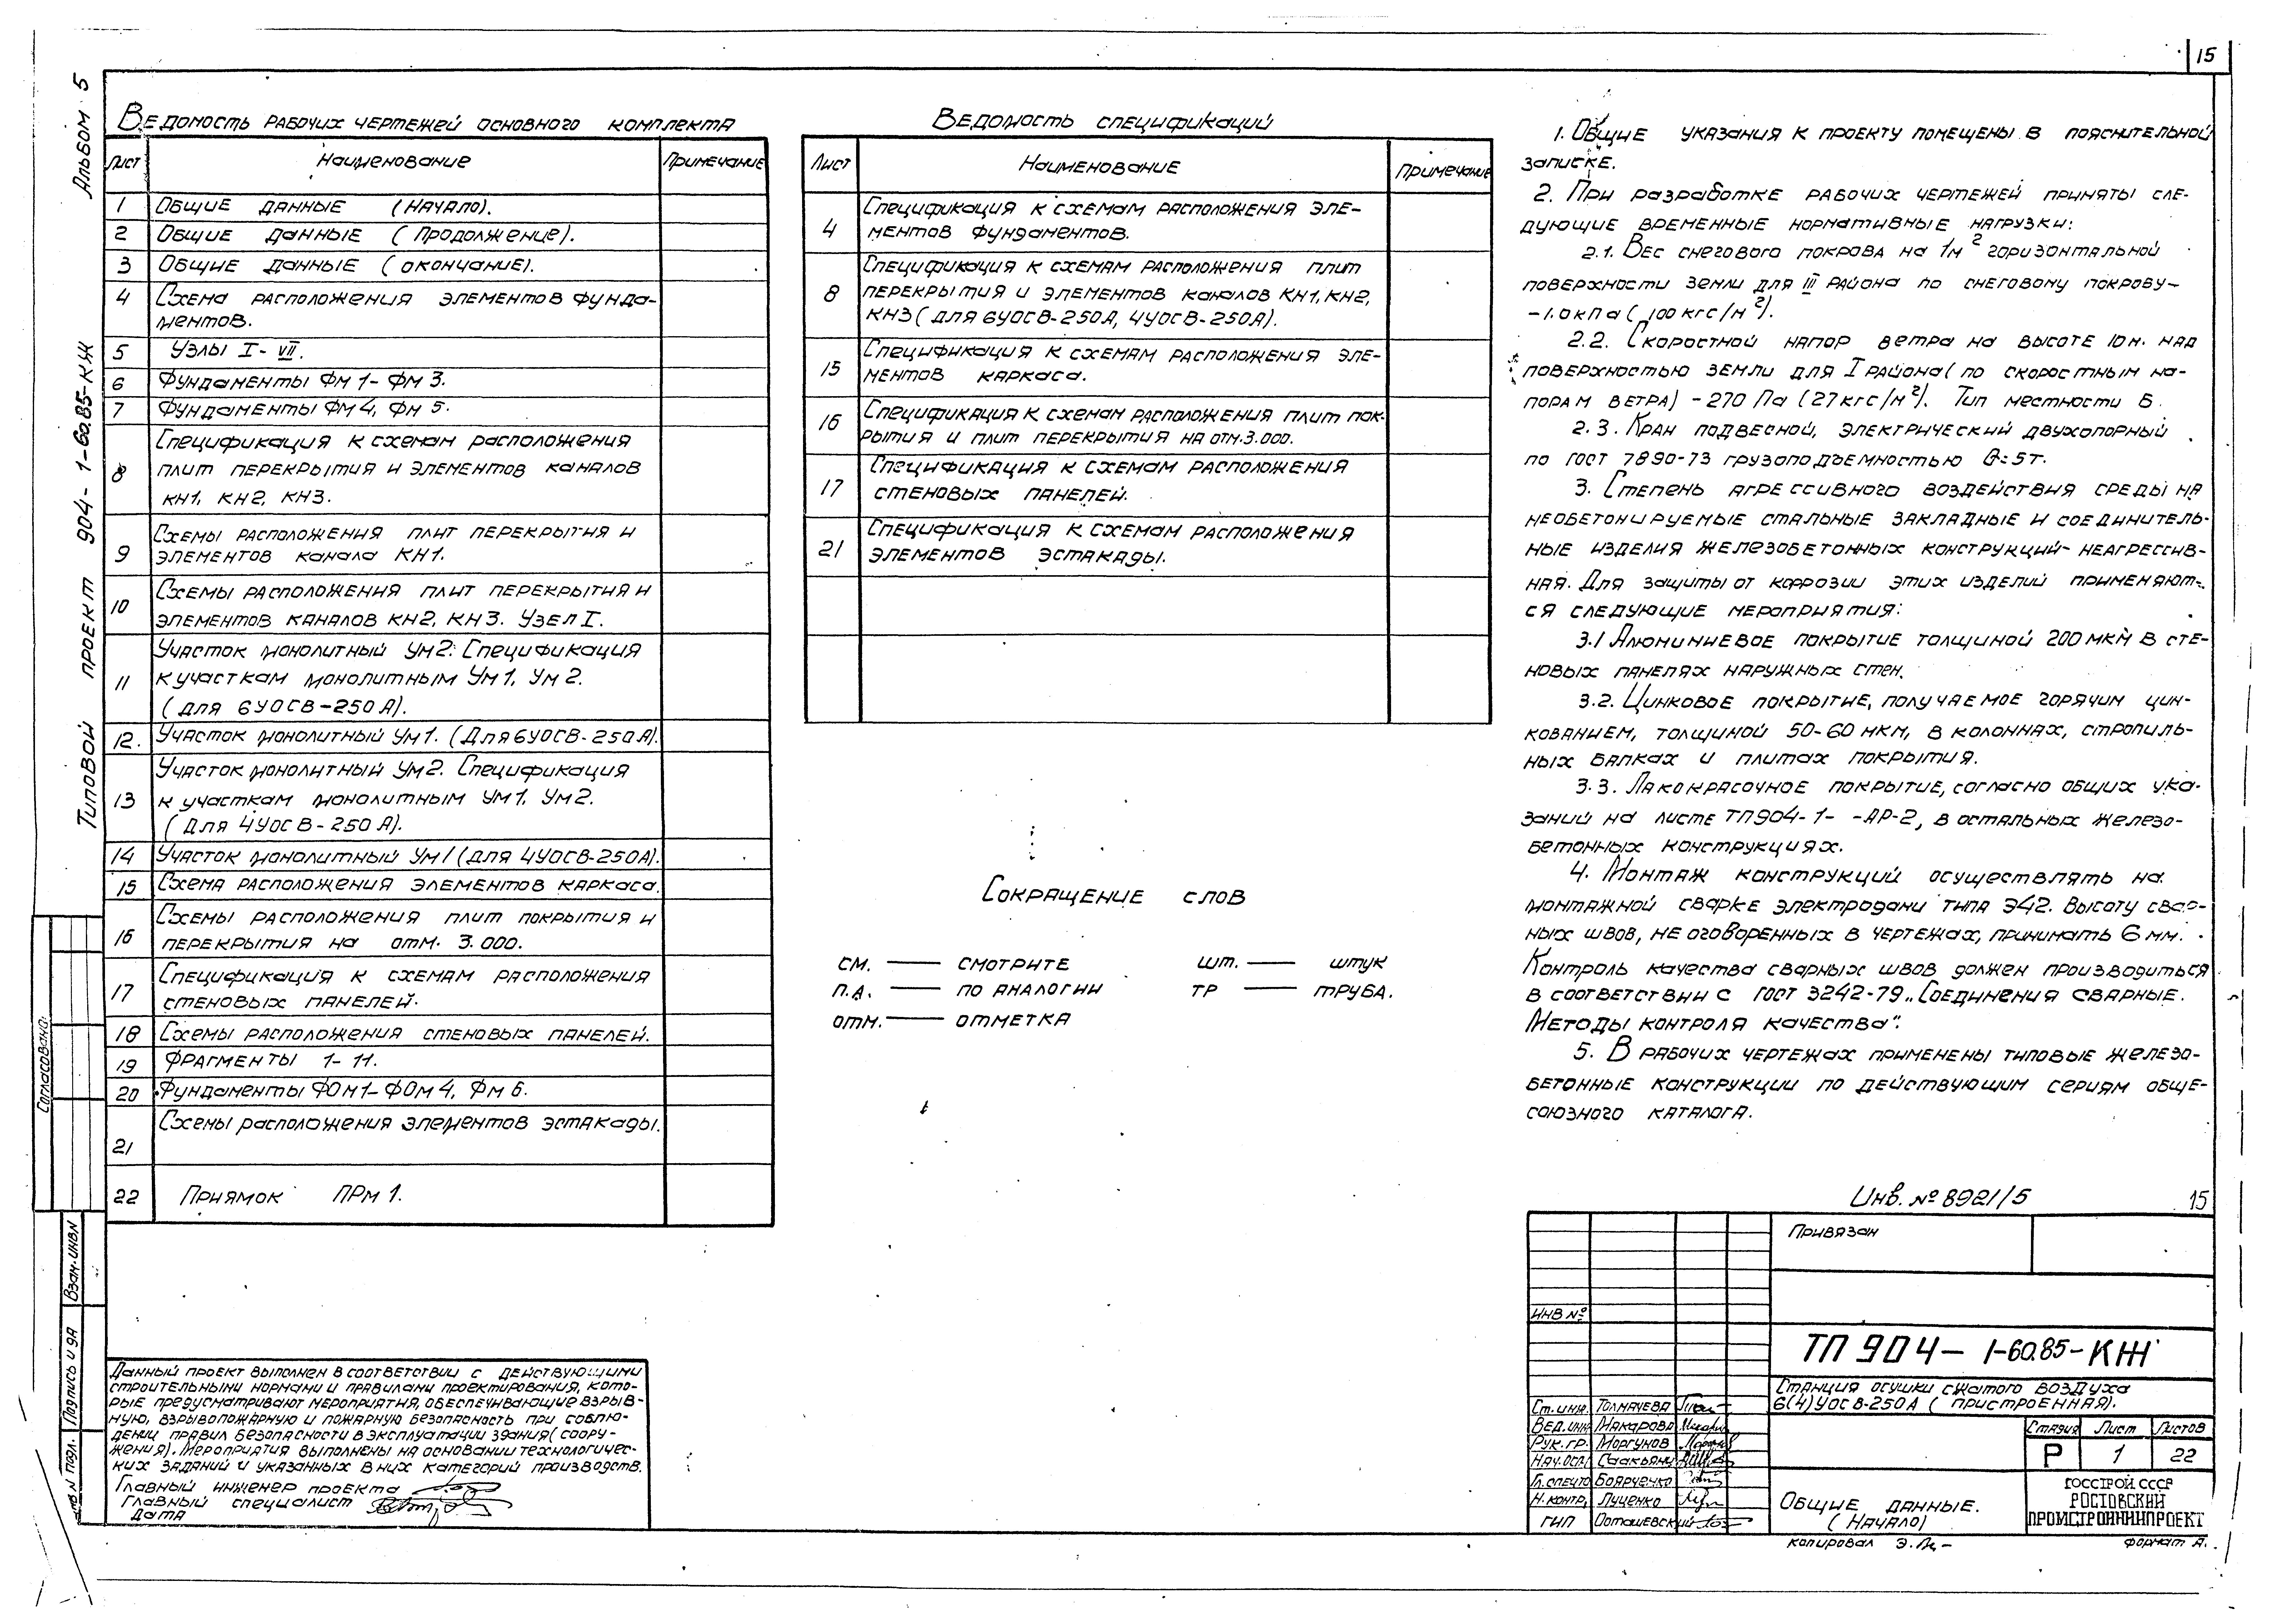 15
Альбом 5
Типовой проект 904-1-60.85-КЖ
Ведомость рабочих чертежей основного комплекта
Лист Наименование Примечание
1 Общие данные (начало).
2 Общие данные (продолжение).
3 Общие данные (окончание).
4 Схема расположения элементов фунда-
ментов.
5 Узлы I-VII.
6 Фундаменты Фм1-Фм3.
7 Фундаменты Фм4, Фм5.
8 Спецификация к схемам расположения
плит перекрытия и элементов каналов
КН1, КН2, КН3.
9 Схемы расположения плит перекрытия и
элементов канала КН1.
10 Схемы расположения плит перекрытия и
элементов каналов КН2, КН3. Узел I.
11 Участок монолитный Ум2. Спецификация
к участкам монолитным Ум1, Ум2.
(для 6УОСВ-250А).
12. Участок монолитный Ум1. (Для 6УОСВ-250А).
13 Участок монолитный Ум2. Спецификация
к участкам монолитным Ум1, Ум2.
(для 4УОСВ-250А).
14 Участок монолитный Ум1 (для 4УОСВ-250А).
15 Схема расположения элементов каркаса.
16 Схемы расположения плит покрытия и
перекрытия на отм. 3.000.
17 Спецификация к схемам расположения
стеновых панелей.
18 Схемы расположения стеновых панелей.
19 Фрагменты 1-11.
20 Фундаменты ФОм1-ФОм4, Фм6.
21 Схемы расположения элементов эстакады.
22 Приямок ПРм1.
Ведомость спецификаций
Лист Наименование Примечание
4 Спецификация к схемам расположения эле-
ментов фундаментов.
8 Спецификация к схемам расположения плит
перекрытия и элементов каналов КН1, КН2,
КН3 (для 6УОСВ-250А, 4УОСВ-250А).
15 Спецификация к схемам расположения эле-
ментов каркаса.
16 Спецификация к схемам расположения плит пок-
рытия и плит перекрытия на отм. 3.000.
17 Спецификация к схемам расположения
стеновых панелей.
21 Спецификация к схемам расположения
элементов эстакады.
Сокращение слов
см. — смотрите
п.а. — по аналогии
отм. — отметка
шт. — штук
тр — труба.
1. Общие указания к проекту помещены в пояснительной
записке.
2. При разработке рабочих чертежей приняты сле-
дующие временные нормативные нагрузки:
2.1. Вес снегового покрова на 1м² горизонтальной
поверхности земли для III района по снеговому покрову-
-1.0 кПа (100 кгс/м²).
2.2. Скоростной напор ветра на высоте 10м. над
поверхностью земли для I района (по скоростным на-
порам ветра) -270 Па (27 кгс/м²). Тип местности Б.
2.3. Кран подвесной, электрический двухопорный
по ГОСТ 7890-73 грузоподъемностью Q=5т.
3. Степень агрессивного воздействия среды на
необетонируемые стальные закладные и соединитель-
ные изделия железобетонных конструкций- неагрессив-
ная. Для защиты от коррозии этих изделий применяют-
ся следующие мероприятия:
3.1 Алюминиевое покрытие толщиной 200 мкм в сте-
новых панелях наружных стен.
3.2. Цинковое покрытие, получаемое горячим цин-
кованием, толщиной 50-60 мкм, в колоннах, стропиль-
ных балках и плитах покрытия.
3.3. Лакокрасочное покрытие, согласно общих ука-
заний на листе ТП904-1- -АР-2, в остальных железо-
бетонных конструкциях.
4. Монтаж конструкций осуществлять на
монтажной сварке электродами типа Э42. Высоту свар-
ных швов, не оговоренных в чертежах, принимать 6 мм.
Контроль качества сварных швов должен производиться
в соответствии с ГОСТ 3242-79 „Соединения сварные.
Методы контроля качества".
5. В рабочих чертежах применены типовые железо-
бетонные конструкции по действующим сериям обще-
союзного каталога.
Инв. № 8921/5 15
Согласовано:
Взам. инв. N
Подпись и дА
Инв N подл.
Данный проект выполнен в соответствии с действующими
строительными нормами и правилами проектирования, кото-
рые предусматривают мероприятия, обеспечивающие взрыв-
ную, взрывопожарную и пожарную безопасность при соблю-
дении правил безопасности в эксплуатации здания (соору-
жения). Мероприятия выполнены на основании технологичес-
ких заданий и указанных в них категорий производств.
Главный инженер проекта
Главный специалист
Дата
Привязан
Инв №
ТП 904-1-60.85-КЖ
Станция осушки сжатого воздуха
6(4)УОСВ-250А (пристроенная).
Ст. инж. Толмачева
Вед. инж Макарова
Рук. гр. Моргунов
Нач. осп. Саакьянц
Гл. спец то Боярченко
Н. контр. Луценко
ГИП
Стадия Лист Листов
Р 1 22
Общие данные.
(Начало)
ГОССТРОЙ СССР
РОСТОВСКИЙ
ПРОМСТРОЙНИИПРОЕКТ
копировал
формат А.